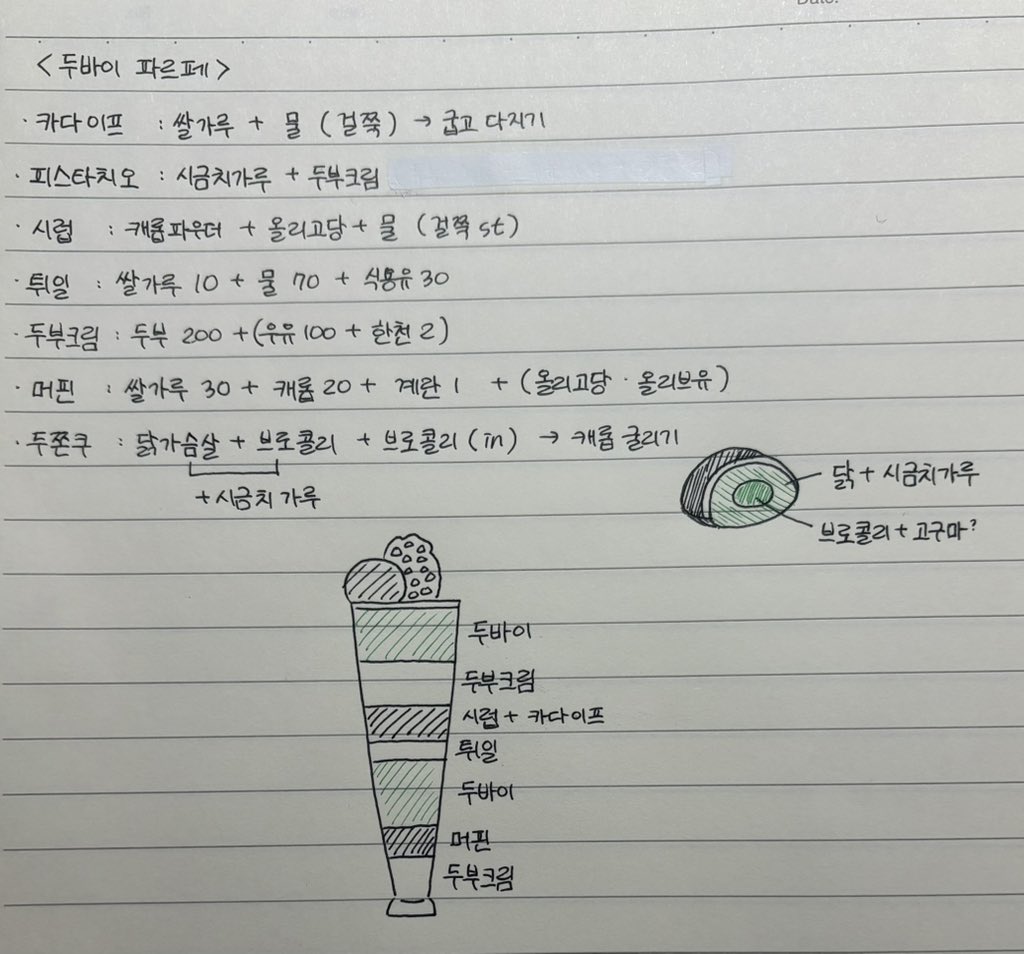 Date.
< 두바이 파르페 >
· 카다이프 : 쌀가루 + 물 (걸쭉) → 굽고 다지기
· 피스타치오 : 시금치가루 + 두부크림
· 시럽 : 캐롭파우더 + 올리고당 + 물 (걸쭉 st)
· 튀일 : 쌀가루 10 + 물 70 + 식용유 30
· 두부크림 : 두부 200 + (우유 100 + 한천 2)
· 머핀 : 쌀가루 30 + 캐롭 20 + 계란 1 + (올리고당 · 올리브유)
· 두쫀쿠 : 닭가슴살 + 브로콜리 + 브로콜리 (in) → 캐롭 굴리기
+ 시금치 가루
닭 + 시금치가루
브로콜리 + 고구마?
두바이
두부크림
시럽 + 카다이프
튀일
두바이
머핀
두부크림